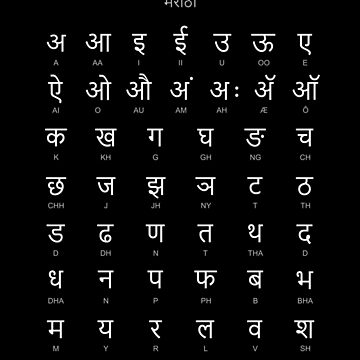 मराठी
अ आ इ ई उ ऊ ए
A AA I II U OO E
ऐ ओ औ अं अः ॲ ऑ
AI O AU AM AH Æ Ô
क ख ग घ ङ च
K KH G GH NG CH
छ ज झ ञ ट ठ
CHH J JH NY T TH
ड ढ ण त थ द
D DH N T THA D
ध न प फ ब भ
DHA N P PH B BHA
म य र ल व श
M Y R L V SH